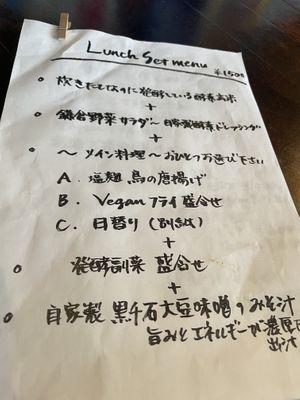 Lunch Set menu
¥1500
• 炊きたてなのに発酵している酵素玄米
+
• 鎌倉野菜サラダ〜自家製酵素ドレッシング
+
• 〜メイン料理〜おひとつお選び下さい
A. 塩麹 鳥の唐揚げ
B. Vegan フライ 盛合せ
C. 日替り (別紙)
+
• 発酵副菜 盛合せ
+
• 自家製 黒千石大豆味噌のみそ汁
旨みとエネルギーが濃厚
出汁